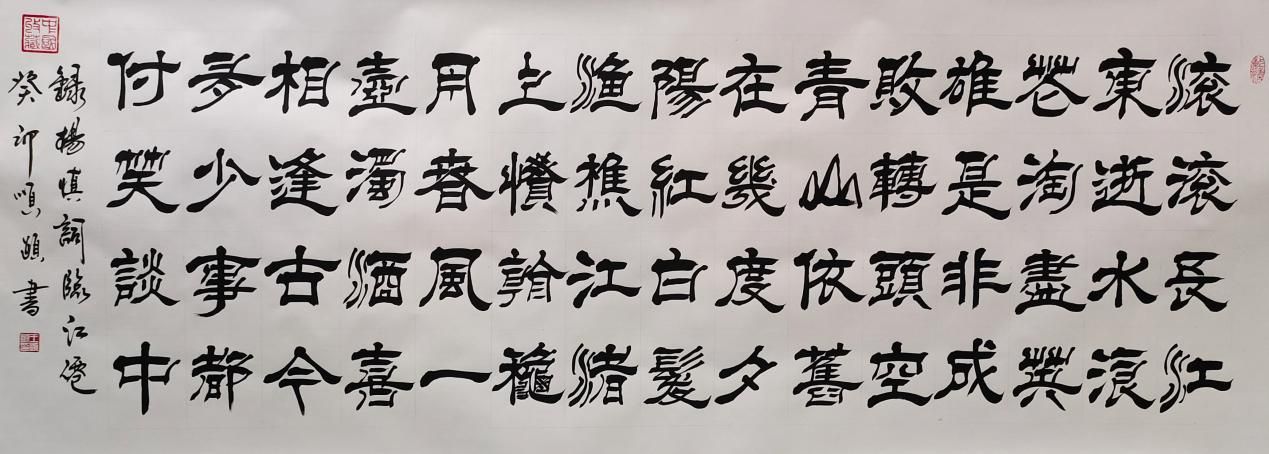 滚滚長江
東逝水浪
花淘盡英
雄是非成
敗轉頭空
青山依舊
在幾度夕
陽紅白髮
漁樵江渚
上慣看龝
月春風一
壺濁酒喜
相逢古今
多少事都
付笑談中
録楊慎詞臨江僊
癸卯順書